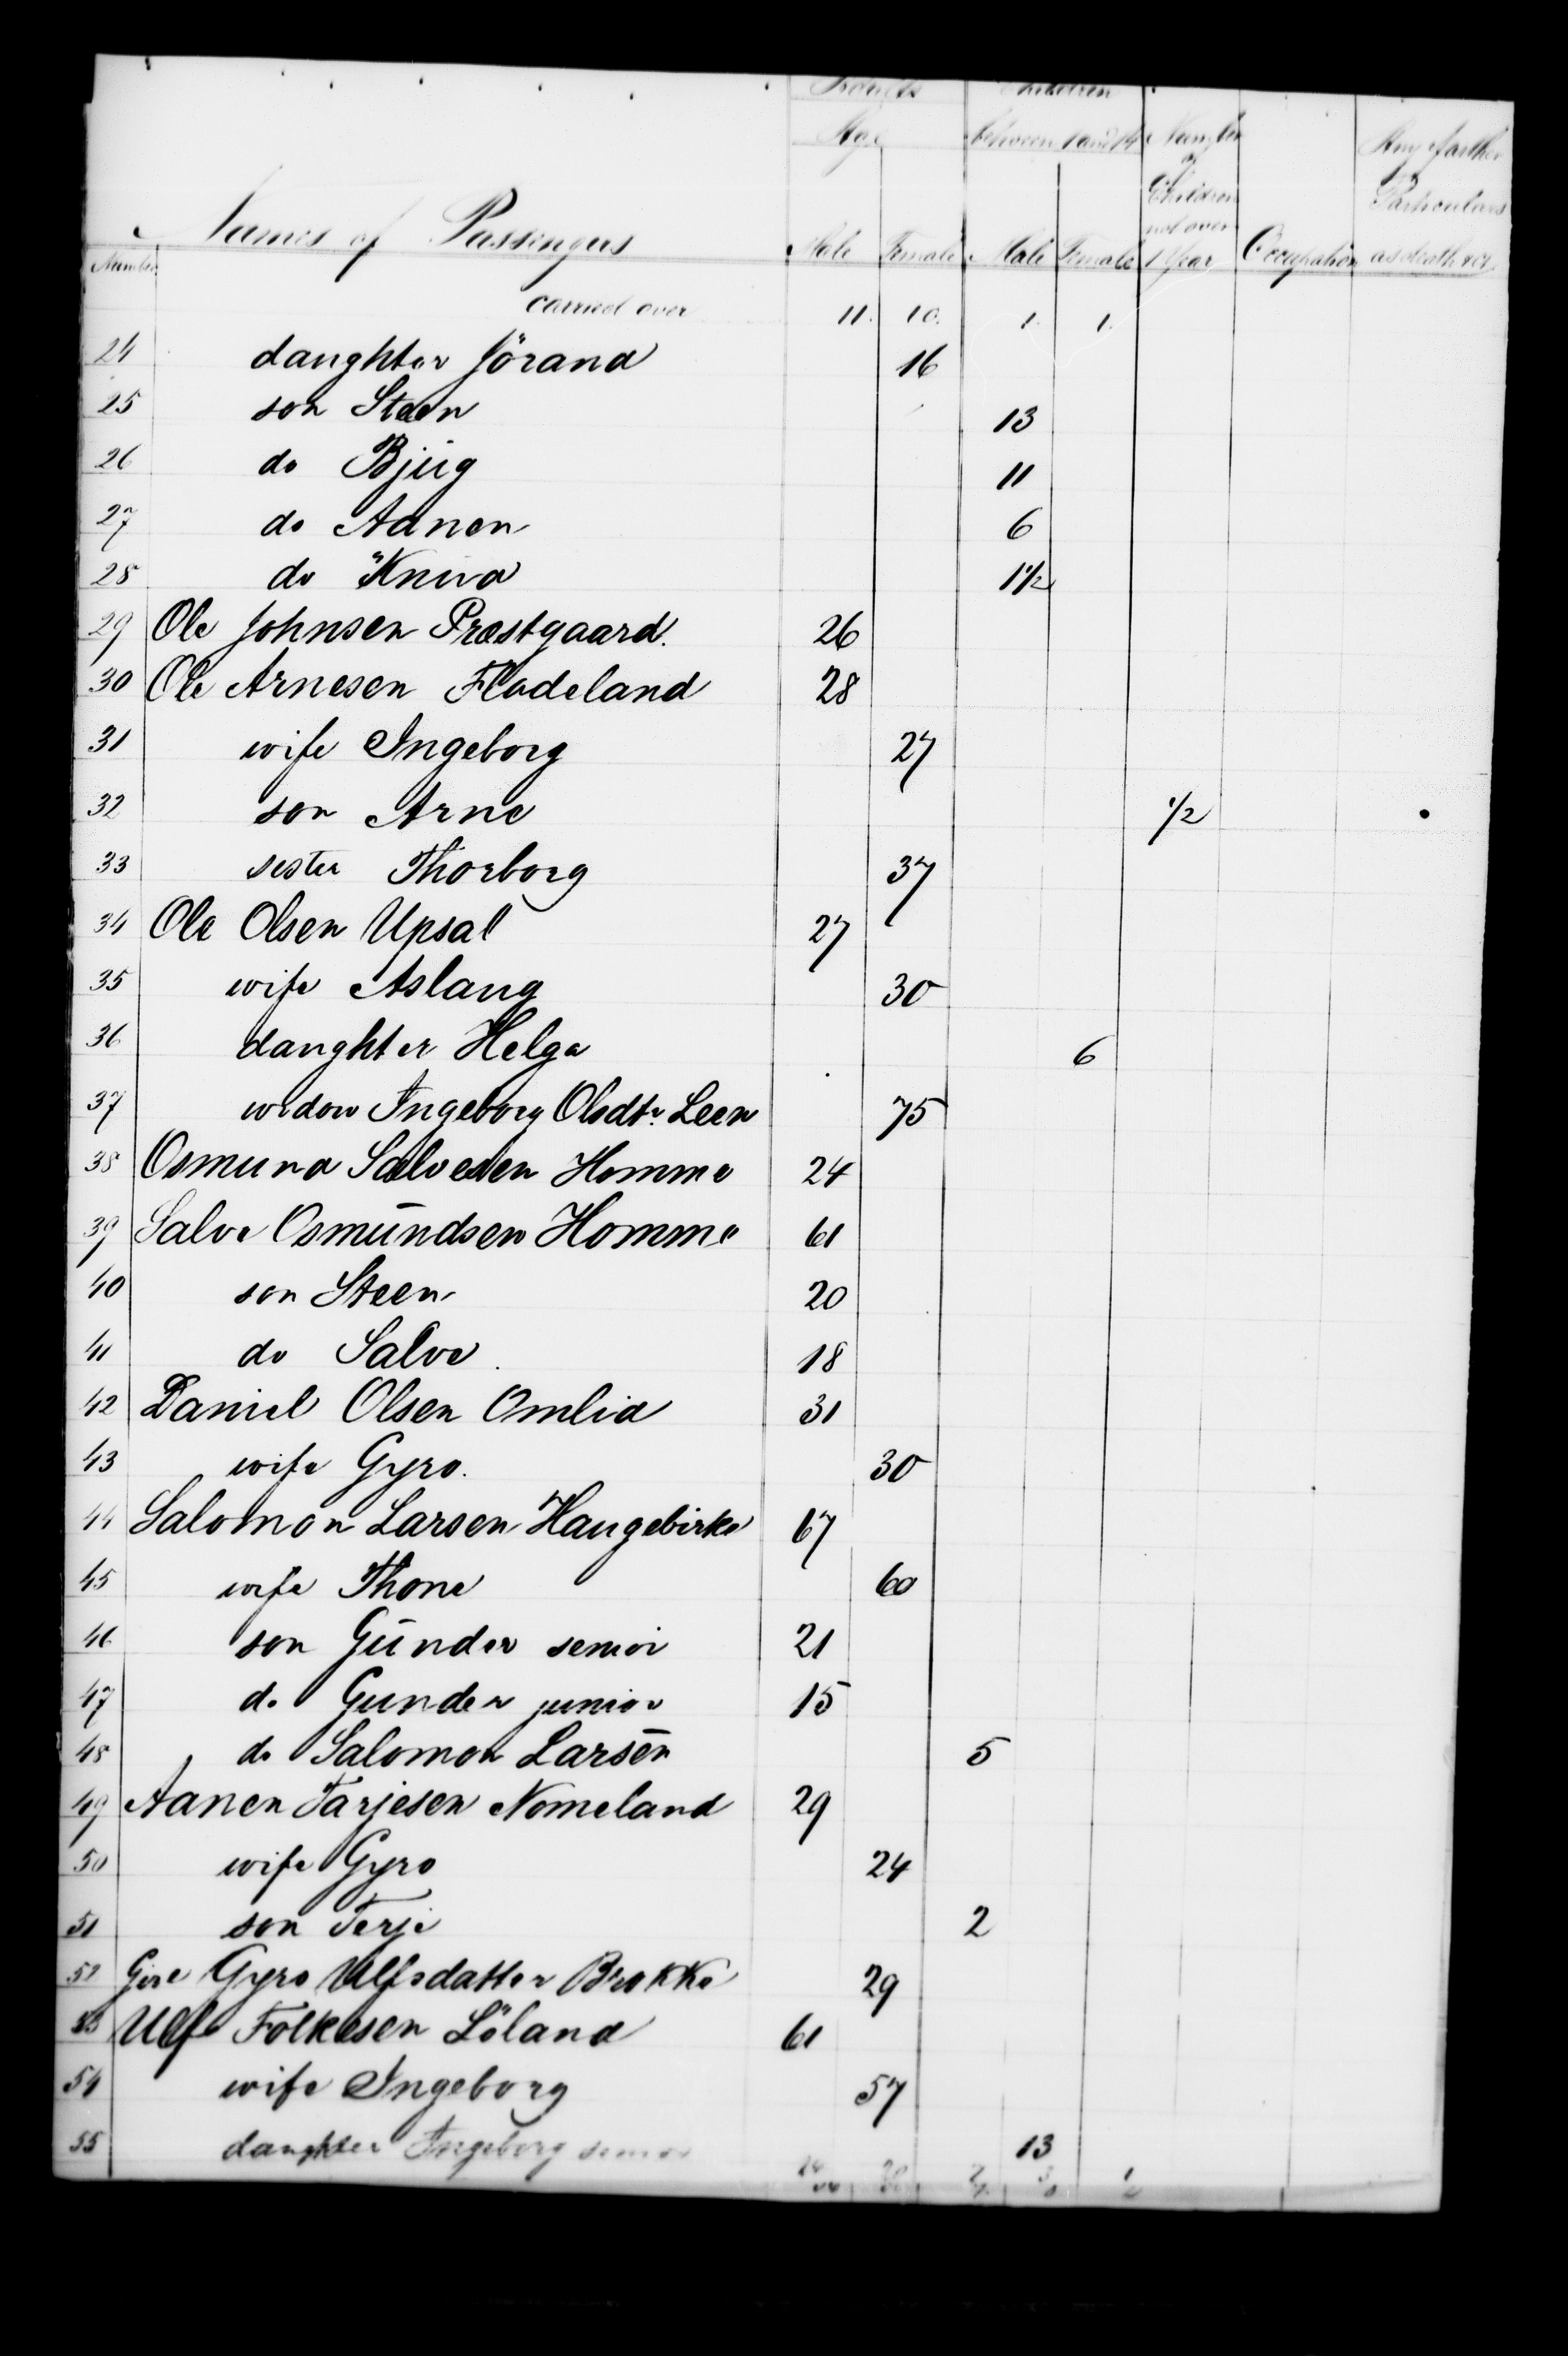 Adults Children
Age between 1 and 14 Number Any further
of
Children Particulars
not over
Names of Passengers
Number Male Female Male Female 1 Year Occupation as death &ct.
carried over 11. 10. 1. 1.
24 daughter Jörand 16
25 son Steen 13
26 do Bjug 11
27 do Adnen 6
28 do Knud 1 1/2
29 Ole Johnsen Præstgaard. 26
30 Ole Arnesen Fladeland 28
31 wife Ingeborg 27
32 son Arne 1/2
33 sister Thorborg 37
34 Ole Olsen Upsal 27
35 wife Aslaug 30
36 daughter Helga 6
37 widow Ingeborg Olsdtr. Leen 75
38 Osmund Salvesen Homme 24
39 Salve Osmundsen Homme 61
40 son Steen 20
41 do Salve. 18
42 Daniel Olsen Omlid 31
43 wife Gyro. 30
44 Salomon Larsen Haugebirke 67
45 wife Thone 60
46 son Gunder senior 21
47 do Gunder junior 15
48 do Salomon Larsen 5
49 Aanen Tarjesen Nomeland 29
50 wife Gyro 24
51 son Terje 2
52 Gyro Ulfsdatter Brokke 29
53 Ulf Folkesen Löland 61
54 wife Ingeborg 57
55 daughter Ingeborg senior 13